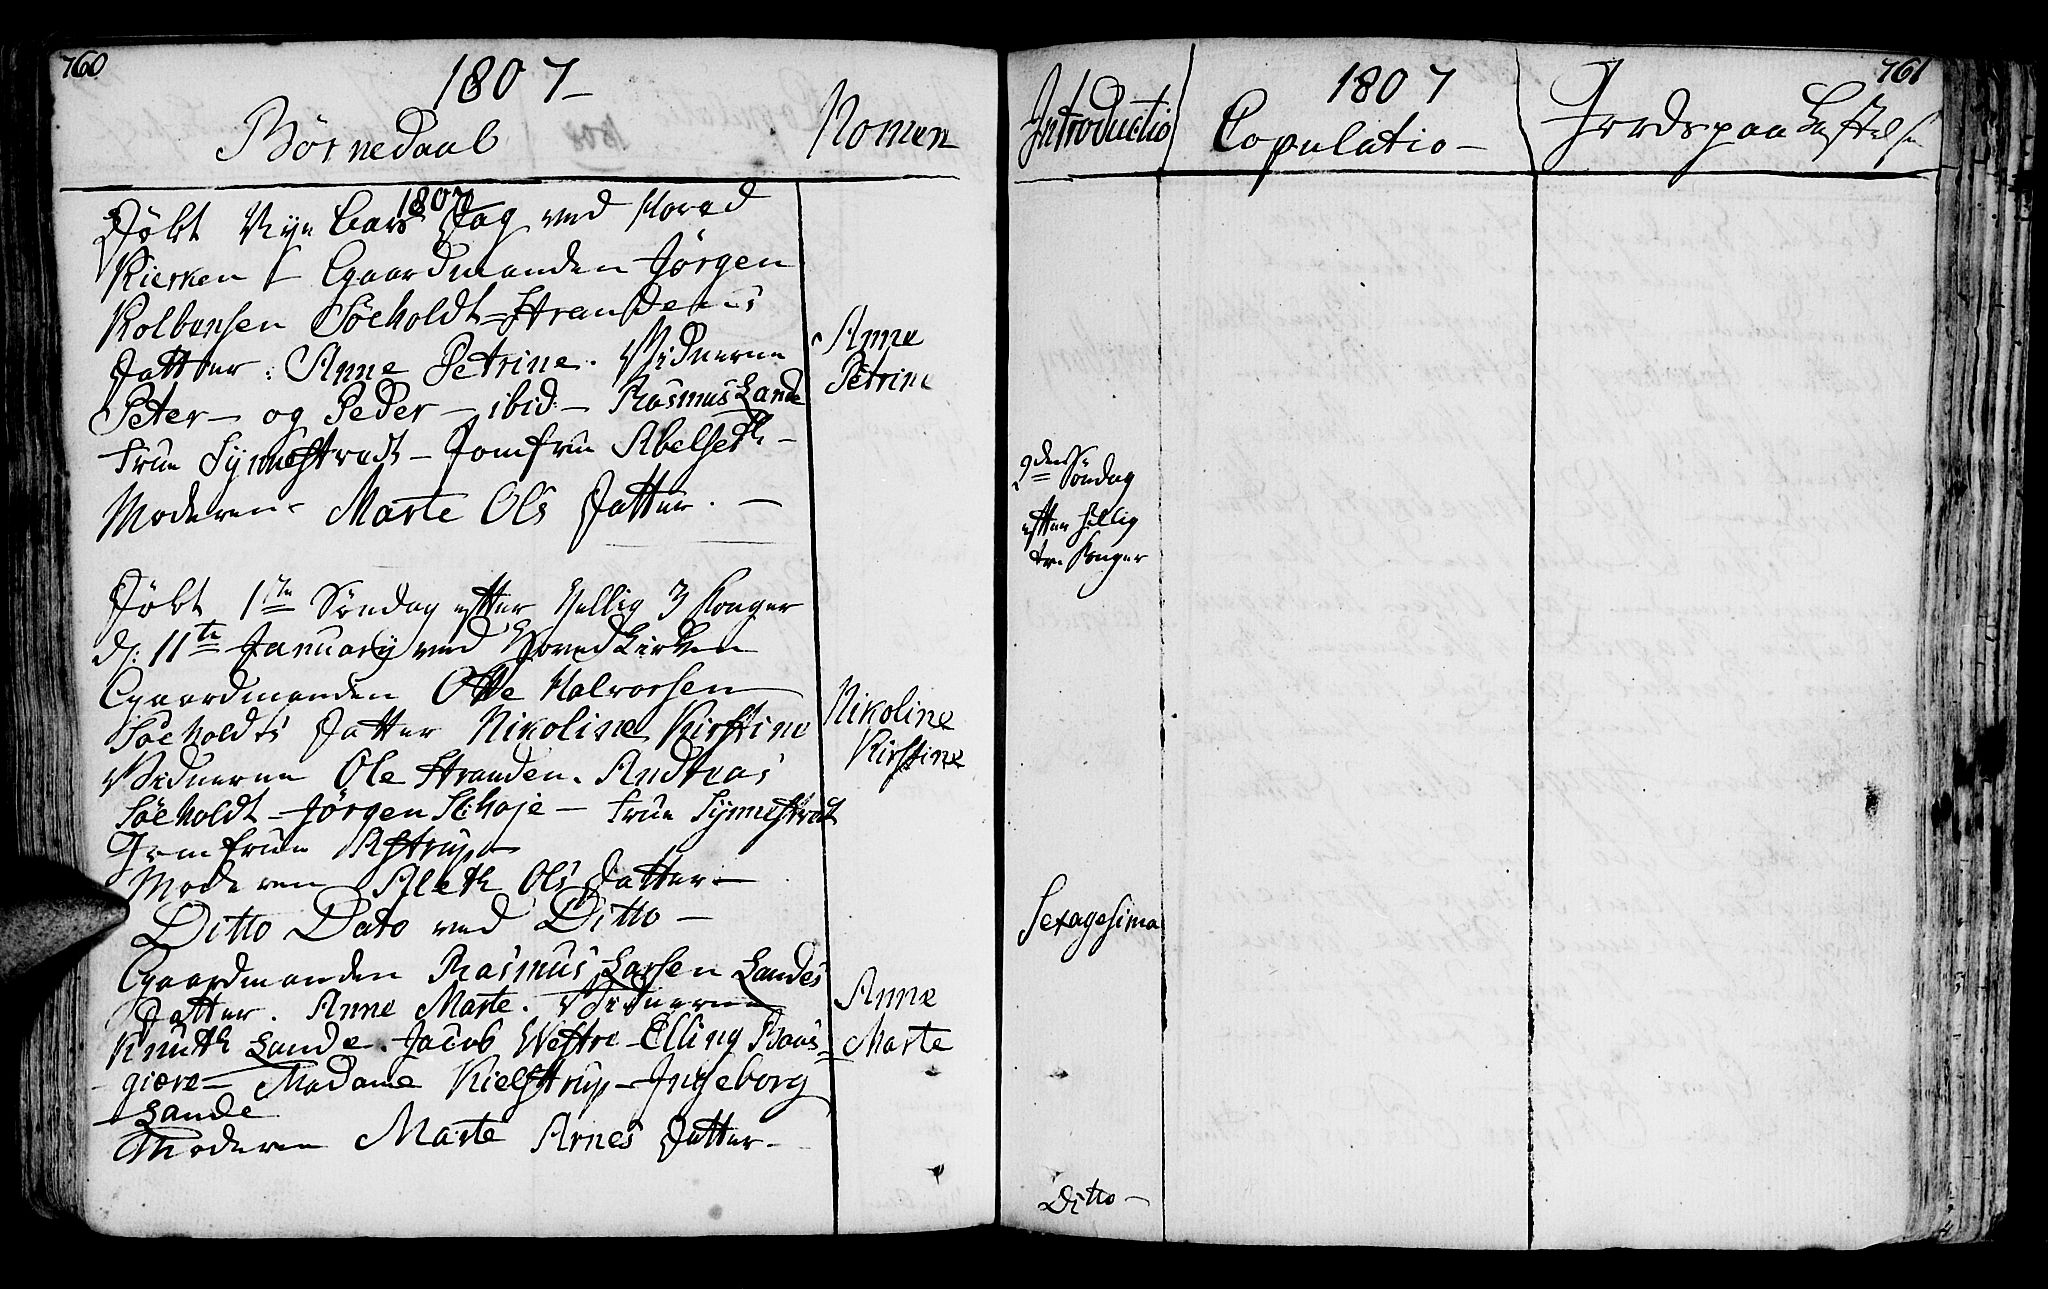 760
1807
Børnedaab
Nomen
1807
Døbt Nye Aars Dag ved Hored
Kierken Gaardmanden Jørgen
Kolbensen Søeholdt-Strandens
Datter: Anne Petrine. Vidnerne
Peter - og Peder - ibid - Rasmus Lande
Frue Synnestvedt - Jomfrue Abelseth -
Moderen - Marte Ols Datter. -
Anne
Petrine
Døbt 1ste Søndag efter Hellig 3 Konger
d: 11te January ved Hored Kirken
Gaardmanden Otte Halvorsen
Søeholdts Datter Nikoline Kirstine
Vidnerne Ole Stranden. Andreas
Søeholdt - Jørgen Skhoje - Frue Synnestvdt
Jomfrue Astrup -
Moderen Aleth Ols Datter -
Nikoline
Kirstine
Ditto Dato ved Ditto -
Gaardmanden Rasmus Larsen Landes
Datter. Anne Marte. Vidnerne
Knuth Lande. Jacob Westre - Elling Baas=
giere - Madame Kielstrup - Ingeborg
Lande
Moderen Marte Arnes Datter -
Anne
Marte
761
1807
Introductio
Copulatio -
Jordspaa Kastelse
2den Søndag
efter Hellig
tre Konger
Sexagesima
Ditto -